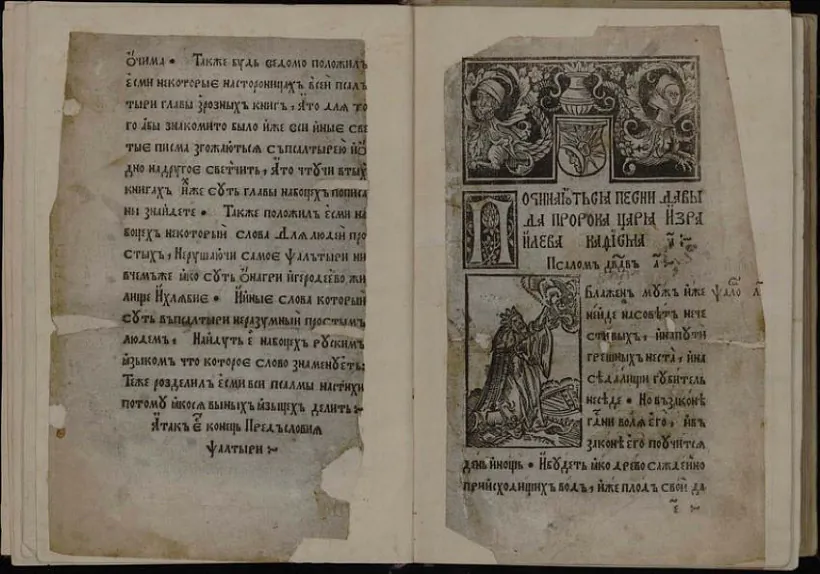 ѻчима • Также будь ведомо положилъ
есми некоторые настороницахъ всей псал
тыри главы зрозныхъ книгъ, Ато для то
го абы знакомито было иже вси иные све
тые писма згожаються съпсалтырею иѡ
дно надругоє светчить, Ато чтучи втыхъ
книгахъ иже суть главы набоцехъ пописа
ны знайдете • Также положилъ есми на
боцехъ некоторыи слова Для людей про
стыхъ, Нерушаючи самоє Ѱалтыри ни
вчемъже ꙗко суть ѻнагри йгеродеѐво, жи
лище Ихлябиє • Ииные слова которыи
суть въпсалтыри неразумныи простымъ
людемъ, Найдуть є набоцехъ рускимъ
ꙗзыкомъ что котороє слово знаменуєть:
Теже розделилъ есми вси псалмы настихи
потому ꙗкося выныхъ ꙗзыцехъ делить
Атакъ Є конецъ Предъсловия
Ѱалтыри
Починаються песни давы
да пророка царꙗ Изра
илева кафисма а҃
Псаломъ дв҃двъ а҃
Блаженъ мужъ иже
нейде насовѣтъ нече
стивыхъ, инапути
грешныхъ неста, ина
сѣдалищи губитель
неседе • Но възаконѣ
гд҃ни волꙗ его, ивъ
законѣ его поучится
день инощь • Ибудеть ꙗко древо саждейно
приисходищихъ водъ, иже плодъ свой да
Ѱало а҃
є҃